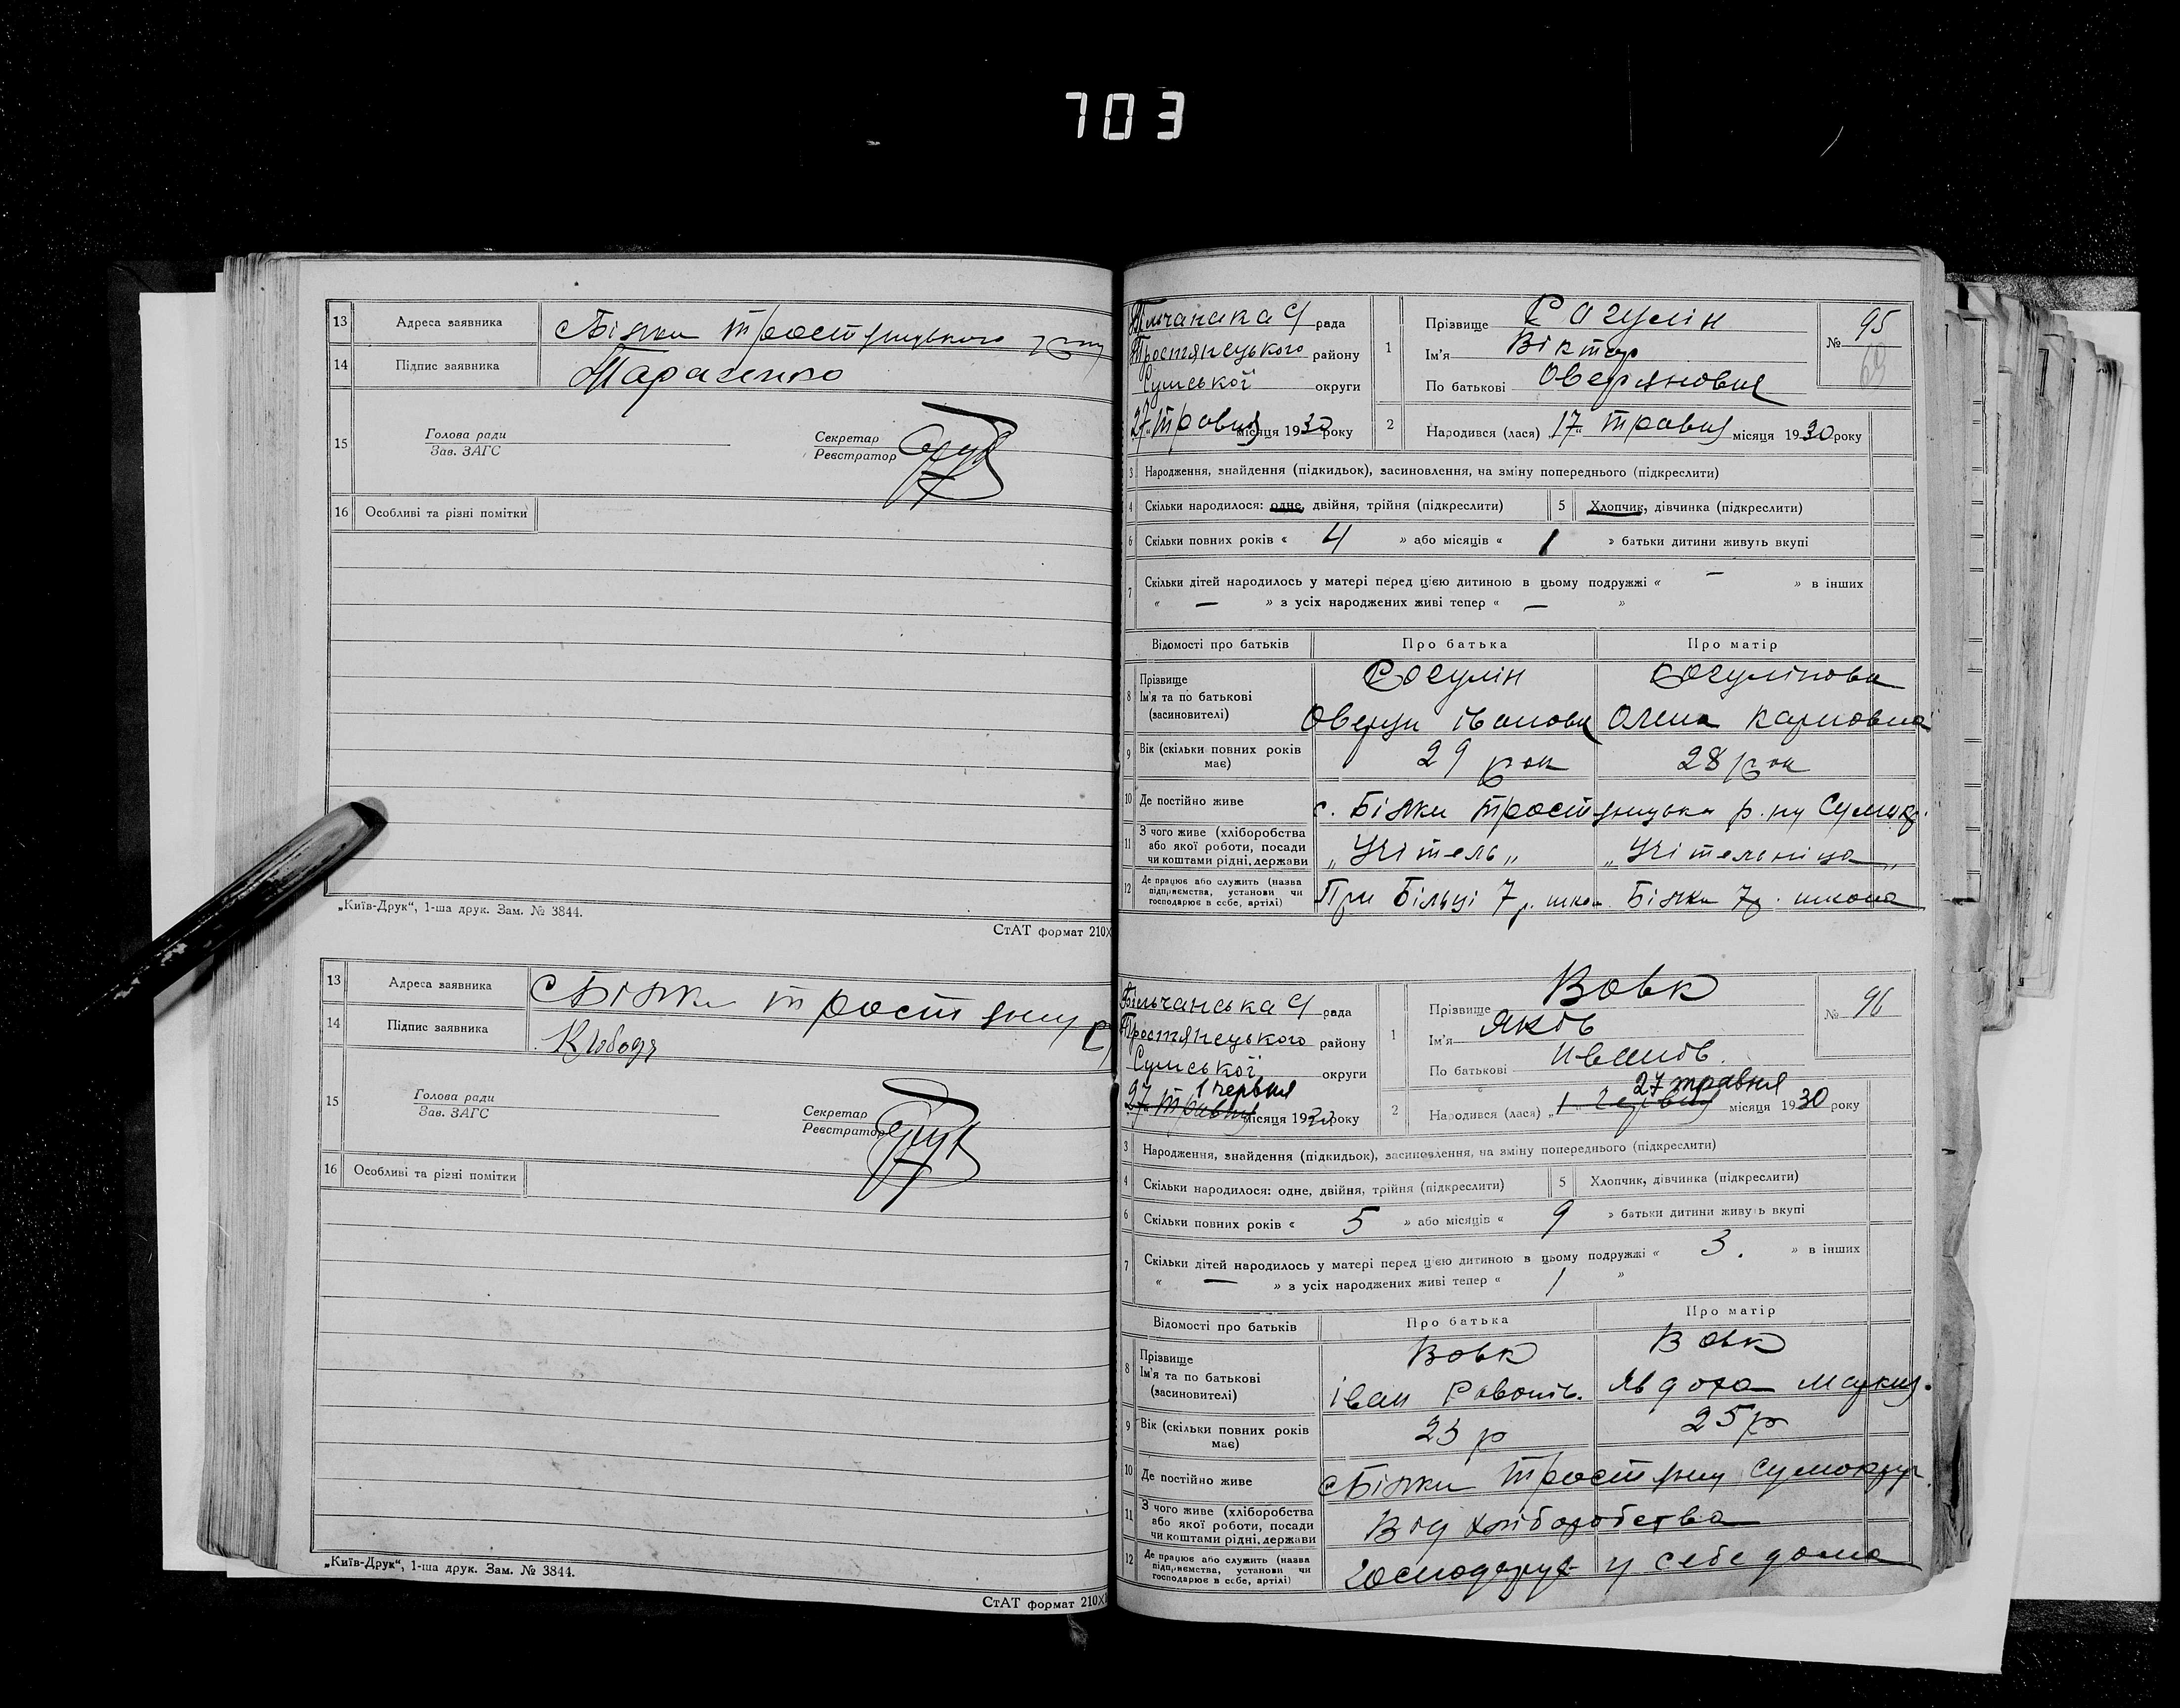 703
13 Адреса заявника с Білки Тростянецького
14 Підпис заявника Тарасенко
15 Голова ради
Зав. ЗАГС
Секретар
Реєстратор
16 Особливі та різні помітки
„Київ-Друк“, 1-ша друк. Зам. № 3844.
СтАТ формат 210X
13 Адреса заявника с Білки Тростянец
14 Підпис заявника
15 Голова ради
Зав. ЗАГС
Секретар
Реєстратор
16 Особливі та різні помітки
„Київ-Друк“, 1-ша друк. Зам. № 3844.
СтАТ формат 210X
рада
Тростянецького району
Сумської округи
27 Травня місяця 1930 року
1 Прізвище
Ім'я Віктор
По батькові
№ 95
69
2 Народився (лася) „17“ травня місяця 1930 року
3 Народження, знайдення (підкидьок), засиновлення, на зміну попереднього (підкреслити)
4 Скільки народилося: одне, двійня, трійня (підкреслити)
5 Хлопчик, дівчинка (підкреслити)
6 Скільки повних років « 4 » або місяців « 1 » батьки дитини живуть вкупі
7 Скільки дітей народилось у матері перед цією дитиною в цьому подружжі « — » в інших
« — » з усіх народжених живі тепер « — »
Відомості про батьків Про батька Про матір
8 Прізвище
Ім'я та по батькові
(засиновителі)
Олена Карповна
9 Вік (скільки повних років має) 29 рок 28 рок
10 Де постійно живе с. Білки Тростянецька р.ну
11 З чого живе (хліборобства або якої роботи, посади чи коштами рідні, держави „Учітель„ „Учітельніца„
12 Де працює або служить (назва підприємства, установи чи господарює в себе, артілі) При Білці 7 р. школ. Білки 7р. школа
Більчанська рада
Тростянецького району
Сумської округи
1 червня
27 травня місяця 1930 року
1 Прізвище Вовк
Ім'я Яков
По батькові Иванов.
№ 96
27 травня
2 Народився (лася) „1“ червня місяця 1930 року
3 Народження, знайдення (підкидьок), засиновлення, на зміну попереднього (підкреслити)
4 Скільки народилося: одне, двійня, трійня (підкреслити)
5 Хлопчик, дівчинка (підкреслити)
6 Скільки повних років « 5 » або місяців « 9 » батьки дитини живуть вкупі
7 Скільки дітей народилось у матері перед цією дитиною в цьому подружжі « 3. » в інших
« — » з усіх народжених живі тепер « 1 »
Відомості про батьків Про батька Про матір
8 Прізвище
Ім'я та по батькові
(засиновителі)
Вовк Вовк
іван Явдоха
9 Вік (скільки повних років має) 25 р
10 Де постійно живе с Білки Тростянец Сумокруг
11 З чого живе (хліборобства або якої роботи, посади чи коштами рідні, держави Від хліборобства
12 Де працює або служить (назва підприємства, установи чи господарює в себе, артілі) господарує у себе дома